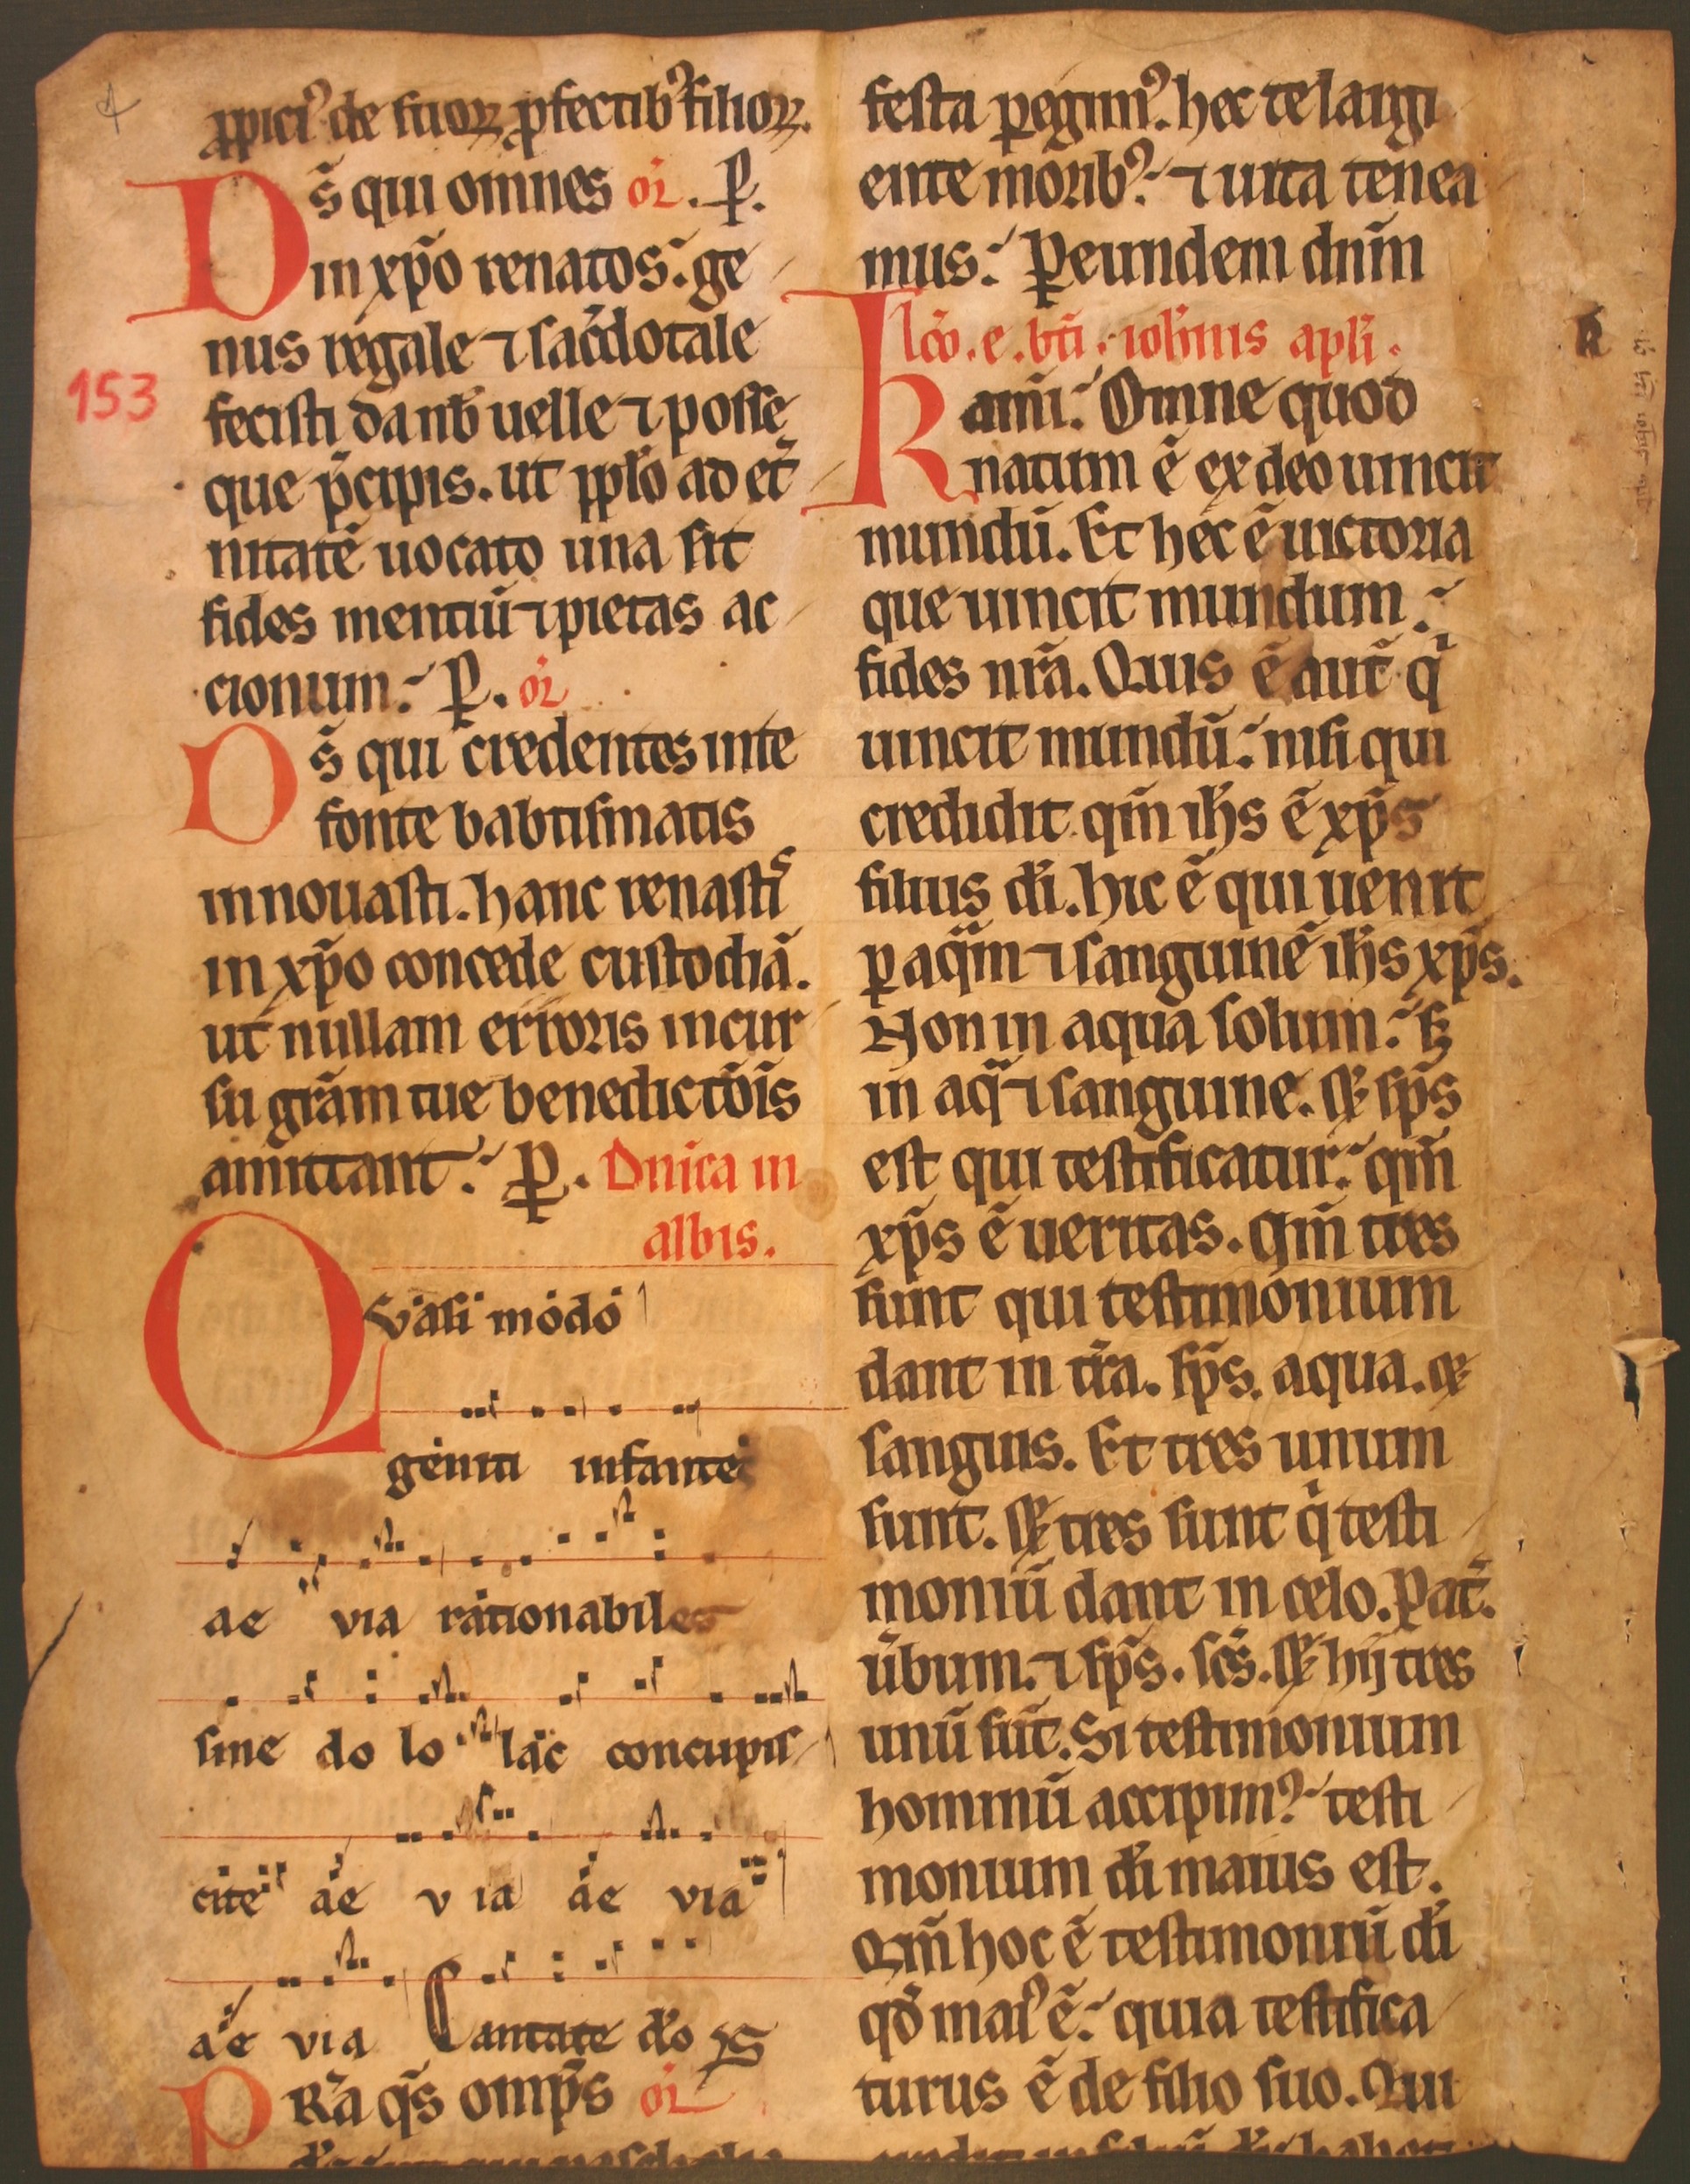 ꝓpici᷒ de suoꝝ ꝓfectib᷒ filioꝝ.
Ds̄ qui omnes or̄. P̱.
in xp̄o renatos. ge
nus regale ⁊ sac̄dotale
153
fecisti da nb̄ uelle ⁊ posse
que p̄cipis. ut ppl̄o ad et̄
nitatē uocato una sit
fides mentiū ⁊ pietas ac
cionum. P̱. or̄
Ds̄ qui credentes in te
fonte babtismatis
innouasti. hanc renastis
in xp̄o concede custodiā.
ut nullam erroris incur
su grām tue benedictōis
amittant. P̱. Dnica in
albis.
Qvasi modo
geniti infantes
ae via rationabiles
sine do lo lac concupis
cite ae via ae via
ae via Cantate dō ps
PRā q̄s omp̄s or̄
festa ꝑegim᷒. hec te largi
ente morib᷒. ⁊ uita tenea
mus. Ꝑ eundem dnm̄
lc̄o. e. bt̄i. ioh̄nis apl̄i.
Kar̄mi. Omne quod
natum ē ex deo uincit
mundū. Et hec ē uictoria
que uincit mundum.
fides nr̄a. Quis ē aut̄ q̄
uincit mundū. nisi qui
credidit qm̄ ih̄s ē xp̄s
filius dī. hic ē qui uenit
ꝑ aq̄m ⁊ sanguinē ih̄s xp̄s.
Non in aqua solum. sꝫ
in aq̄ ⁊ sanguine. & sp̄s
est qui testificatur. qm̄
xp̄s ē ueritas. Qm̄ tres
sunt qui testimonium
dant in tr̄a. sp̄s. aqua. &
sanguis. Et tres unum
sunt. & tres sunt q̄ testi
moniū dant in celo. Pat̄.
ūbum. ⁊ sp̄s. sc̄s. & hij tres
unū sūt. Si testimonium
hominū accipim᷒ testi
monium dī maius est.
Qm̄ hoc ē testimoniū dī
qd̄ mai᷒ ē. quia testifica
turus ē de filio suo. Qui